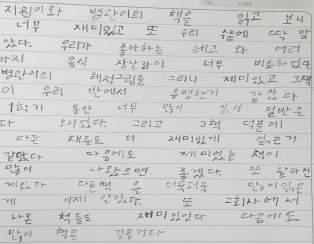 지원이와 병관이의 책을 읽고 보니
너무 재미있고 또 우리 수준에 딱 맞
았다. 우리가 좋아하는 레고와 여러
까지 음식 장난감이 너무 비슷하였다
병관이의 해적그림을 그리니 재미있고 그책
이 우리 반에서 유행한거 같았다
1학기 동안 너무 많이 읽어 절반은
다 외워졌다. 그리고 그책 덕분에
다른 책들도 더 재미있게 읽는거
같았다 다음에도 재미있는 책이
많이 나왔으면 좋겠다. 또 달라진
게있다 다른책은 더욱더욱 많이읽은
게 있었다. 또 그회사에서
나온 책들도 재미있었다 다음에도
많이 책은 읽을거다